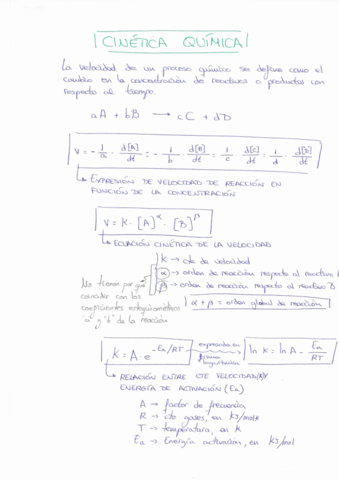 CINÉTICA QUÍMICA
La velocidad de un proceso químico se define como el
cambio en la concentración de reactivos o productos con
respecto al tiempo.
aA + bB → cC + dD
v = - 1/a · d[A]/dt = - 1/b · d[B]/dt = 1/c · d[C]/dt = 1/d · d[D]/dt
↳ EXPRESIÓN DE VELOCIDAD DE REACCIÓN EN
FUNCIÓN DE LA CONCENTRACIÓN
v = K · [A]^α · [B]^β
↳ ECUACIÓN CINÉTICA DE LA VELOCIDAD
K → cte de velocidad
α → orden de reacción respecto al reactivo A
β → orden de reacción respecto al reactivo B
No tienen por qué
coincidir con los
coeficientes estequiométricos
"a" y "b" de la reacción
α + β = orden global de reacción
K = A · e^-Ea/RT
expresada en
forma
logarítmica
ln K = ln A - Ea/RT
↳ RELACIÓN ENTRE CTE VELOCIDAD (K) Y
ENERGÍA DE ACTIVACIÓN (Ea)
A → factor de frecuencia
R → cte gases, en
T → temperatura, en K
Ea → Energía activación, en KJ/mol